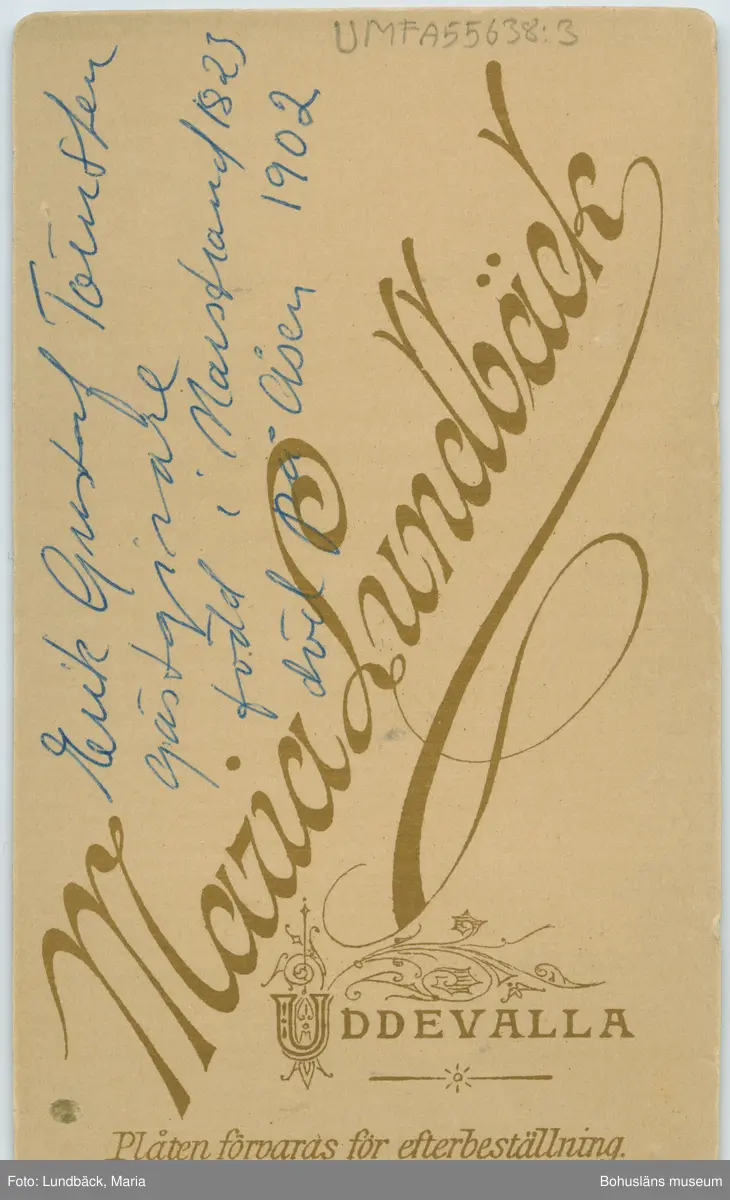 UMFA55638:3
Erik Gustaf Törnsten
gästgivare
född i Marstrand 1823
död på Åsen 1902
Maria Lundbäck
UDDEVALLA
Plåten förvaras för efterbeställning.
Foto: Lundbäck, Maria
Bohusläns museum